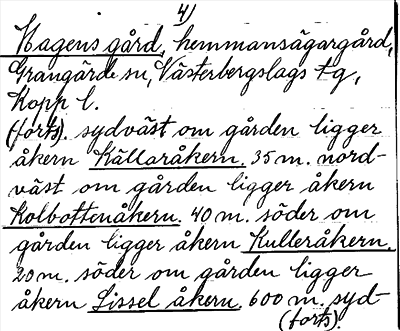 4)
Hagens gård, hemmansägargård,
Grangärde sn, Västerbergslags tg,
Kopp l.
(forts). sydväst om gården ligger
åkern Källaråkern. 35 m. nord-
väst om gården ligger åkern
Kolbottenåkern. 40 m. söder om
gården ligger åkern Kulleråkern.
20 m. söder om gården ligger
åkern Sissel åkern. 600 m. syd-
(forts).